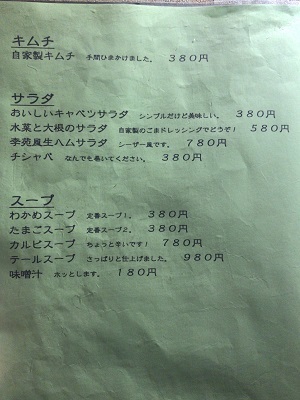 キムチ
自家製キムチ 手間ひまかけました。 380円
サラダ
おいしいキャベツサラダ シンプルだけど美味しい。 380円
水菜と大根のサラダ 自家製のごまドレッシングでどうぞ! 580円
李苑風生ハムサラダ シーザー風です。 780円
チシャバ なんでも巻いてください。 380円
スープ
わかめスープ 定番スープ1。 380円
たまごスープ 定番スープ2。 380円
カルビスープ ちょっと辛いです! 780円
テールスープ さっぱりと仕上げました。 980円
味噌汁 ホッとします。 180円